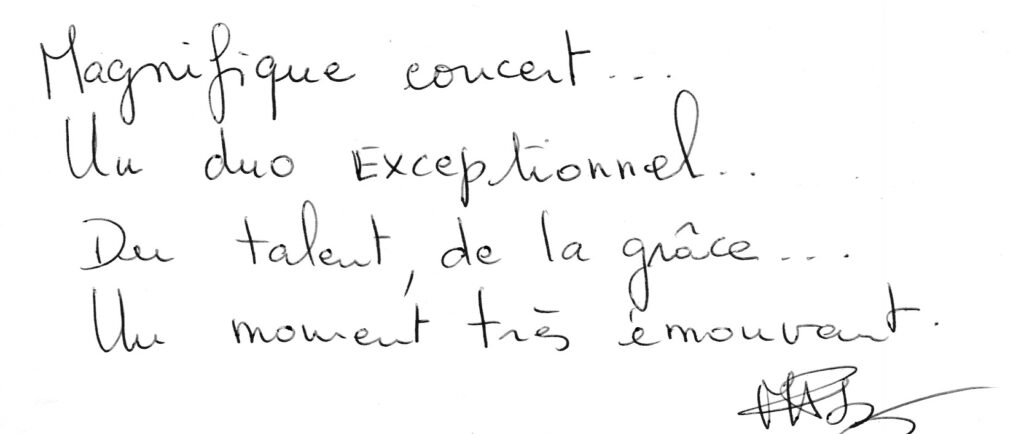 Magnifique concert...
Un duo Exceptionnel...
Du talent, de la grâce....
Un moment très émouvant.